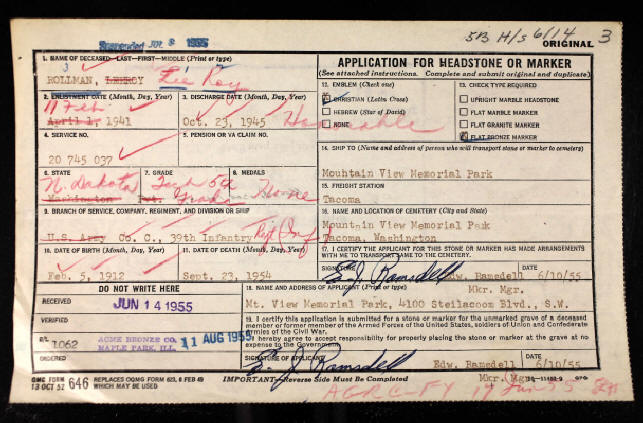 Suspended JUL 8 1955
5B H/s 6/14 3
ORIGINAL
1. NAME OF DECEASED—LAST—FIRST—MIDDLE (Print or type)
3
ROLLMAN, LEEROY Le Roy
2. ENLISTMENT DATE (Month, Day, Year)
11 Feb
April 1, 1941
3. DISCHARGE DATE (Month, Day, Year)
Oct. 23, 1945 Honorable
4. SERVICE NO.
20 745 037
5. PENSION OR VA CLAIM NO.
6. STATE
N. Dakota
Washington
7. GRADE
Tech 5th Grade
Pvt.
8. MEDALS
None
9. BRANCH OF SERVICE, COMPANY, REGIMENT, AND DIVISION OR SHIP
U.S. Army Co. C., 39th Infantry
10. DATE OF BIRTH (Month, Day, Year)
Feb. 5, 1912
11. DATE OF DEATH (Month, Day, Year)
Sept. 23, 1954
APPLICATION FOR HEADSTONE OR MARKER
(See attached instructions. Complete and submit original and duplicate)
12. EMBLEM (Check one)
CHRISTIAN (Latin Cross)
HEBREW (Star of David)
NONE
13. CHECK TYPE REQUIRED
UPRIGHT MARBLE HEADSTONE
FLAT MARBLE MARKER
FLAT GRANITE MARKER
FLAT BRONZE MARKER
14. SHIP TO (Name and address of person who will transport stone or marker to cemetery)
Mountain View Memorial Park
15. FREIGHT STATION
Tacoma
16. NAME AND LOCATION OF CEMETERY (City and State)
Mountain View Memorial Park
Tacoma, Washington
17. I CERTIFY THE APPLICANT FOR THIS STONE OR MARKER HAS MADE ARRANGEMENTS
WITH ME TO TRANSPORT SAME TO THE CEMETERY.
SIGNATURE
E. J. Ramsdell Edw. Ramsdell
Mkr. Mgr.
DATE
6/10/55
DO NOT WRITE HERE
RECEIVED
JUN 14 1955
VERIFIED
B/L
1062
ACME BRONZE CO.
MAPLE PARK, ILL.
11 AUG 1955
ORDERED
18. NAME AND ADDRESS OF APPLICANT (Print or type)
Mt. View Memorial Park, 4100 Steilacoom Blvd., S.W.
19. I certify this application is submitted for a stone or marker for the unmarked grave of a deceased
member or former member of the Armed Forces of the United States, soldiers of Union and Confederate
Armies of the Civil War.
I hereby agree to accept responsibility for properly placing the stone or marker at the grave at no
expense to the Government.
SIGNATURE OF APPLICANT
E. J. Ramsdell Edw. Ramsdell
Mkr. Mgr.
DATE
6/10/55
QMC FORM
13 OCT 52 646
REPLACES OQMG FORM 623, 8 FEB 49
WHICH MAY BE USED
IMPORTANT—Reverse Side Must be Completed
AGRC-FY 17 Jun 55